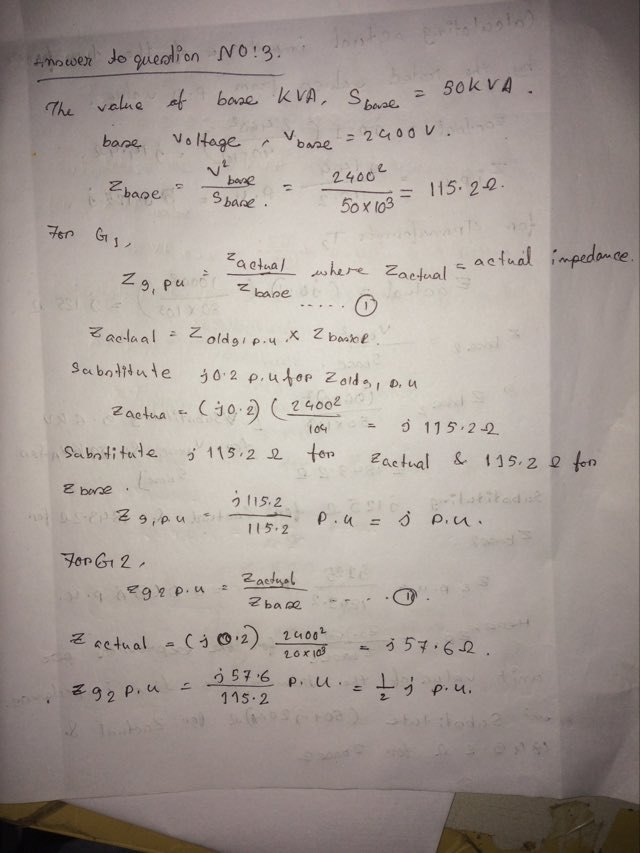 Answer to question NO: 3.
The value of base KVA, S base = 50KVA.
base voltage, V base = 2400V.
Z base = V² base / S base. = 2400² / 50×10³ = 115.2 Ω.
For G1,
Z g, pu = Z actual / Z base where Z actual = actual impedance. ..... ①
Z actual = Z old g1 p.u × Z base
Substitute j0.2 p.u for Z old g, p.u
Z actua = (j0.2) (2400² / 104 = j 115.2 Ω
Substitute j 115.2 Ω for Z actual & 115.2 Ω for
Z base.
Z g, p.u = j115.2 / 115.2 p.u = j p.u.
For G2,
Z g2 p.u = Z actual / Z base ..... ⑪.
Z actual = (j 0.2) 2400² / 20×10³ = j 57.6 Ω.
Z g2 p.u = j 57.6 / 115.2 p.u. = 1/2 j p.u.